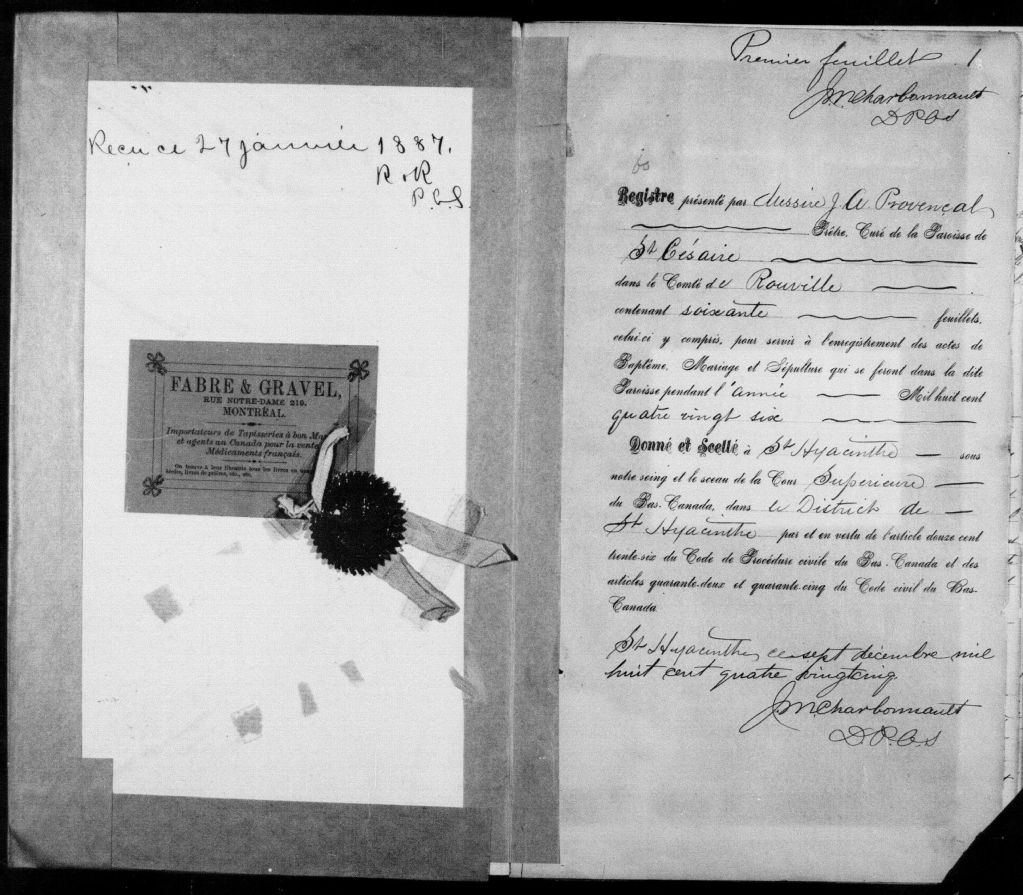 Reçu ce 27 janvier 1887.
R. R
P.C.S.
FABRE & GRAVEL,
RUE NOTRE-DAME 219.
MONTRÉAL.
Importateurs de Tapisseries à bon Ma
et agents au Canada pour la vente
Médicaments français.
On trouve à leur librairie tous les livres en
livres de prières, etc., etc.
Premier feuillet 1
J.N. Charbonnault
D P C S
60
Registre présenté par Messire J A Provençal
Prêtre, Curé de la Paroisse de
St Césaire
dans le Comté de Rouville
contenant soixante feuillets,
celui-ci y compris, pour servir à l'enregistrement des actes de
Baptême, Mariage et Sépulture qui se feront dans la dite
Paroisse pendant l'année Mil huit cent
quatre vingt six
Donné et Scellé à St Hyacinthe sous
notre seing et le sceau de la Cour Supérieure
du Bas-Canada, dans le District de
St Hyacinthe par et en vertu de l'article douze cent
trente-six du Code de Procédure civile du Bas-Canada et des
articles quarante-deux et quarante-cinq du Code civil du Bas-
Canada
St Hyacinthe, ce sept décembre mil
huit cent quatre vingt cinq
J.N. Charbonnault
D.P.C.S